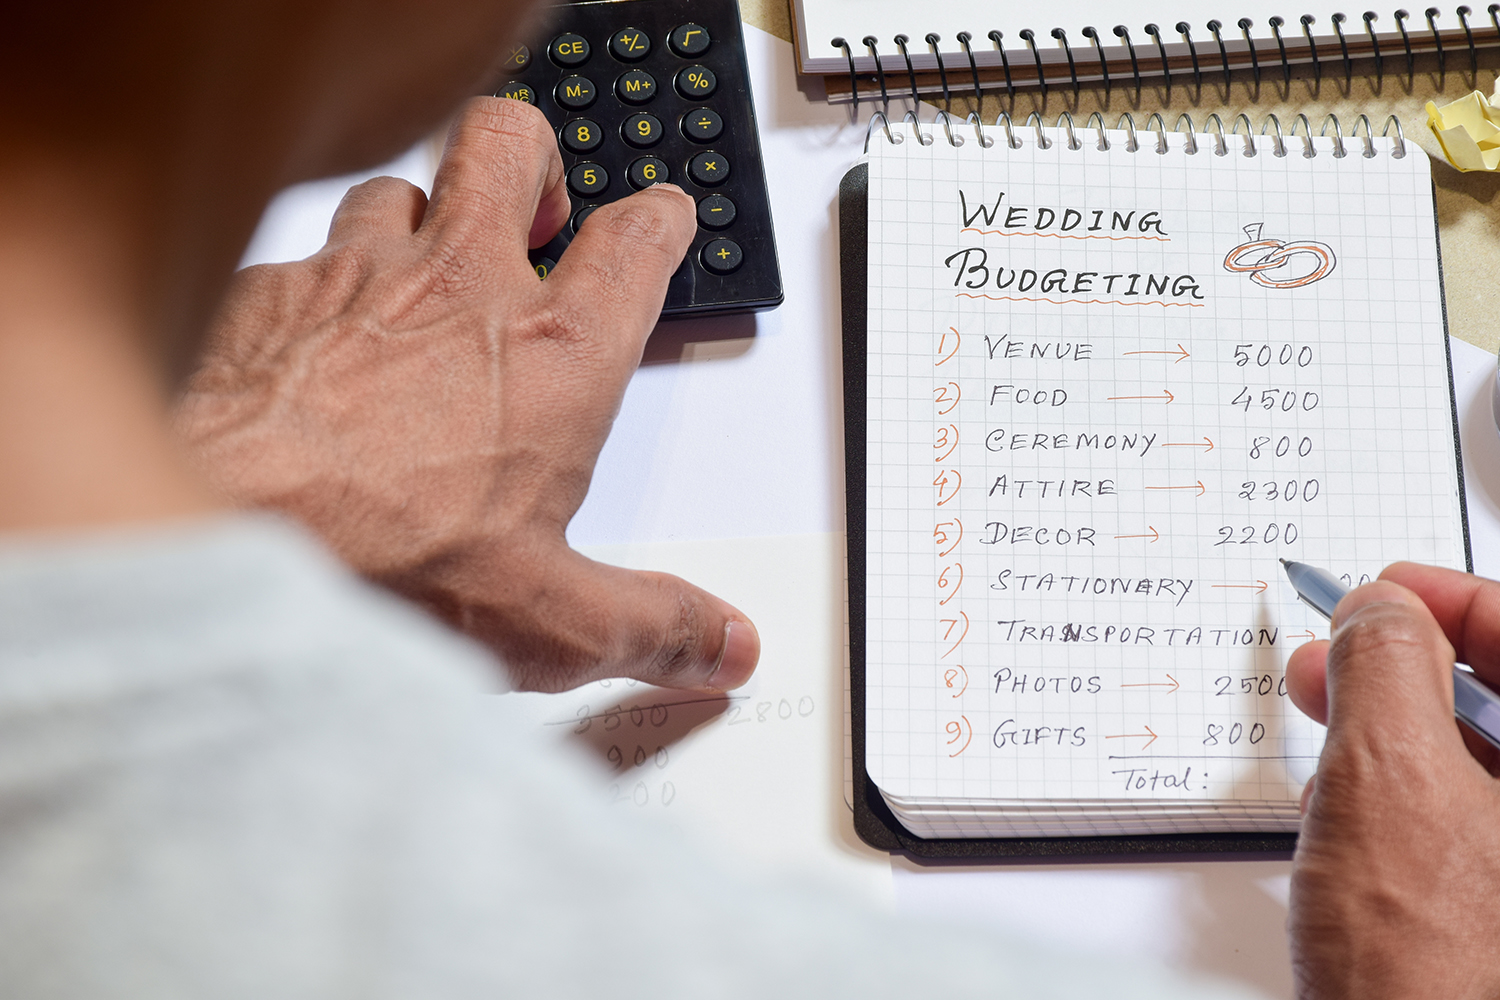 CE
+/−
√
M-
M+
%
8
9
÷
5
6
×
−
0
+
WEDDING
BUDGETING
1) VENUE → 5000
2) FOOD → 4500
3) CEREMONY → 800
4) ATTIRE → 2300
5) DECOR → 2200
6) STATIONERY →
7) TRANSPORTATION →
8) PHOTOS → 2500
9) GIFTS → 800
Total:
3500 2800
900
200